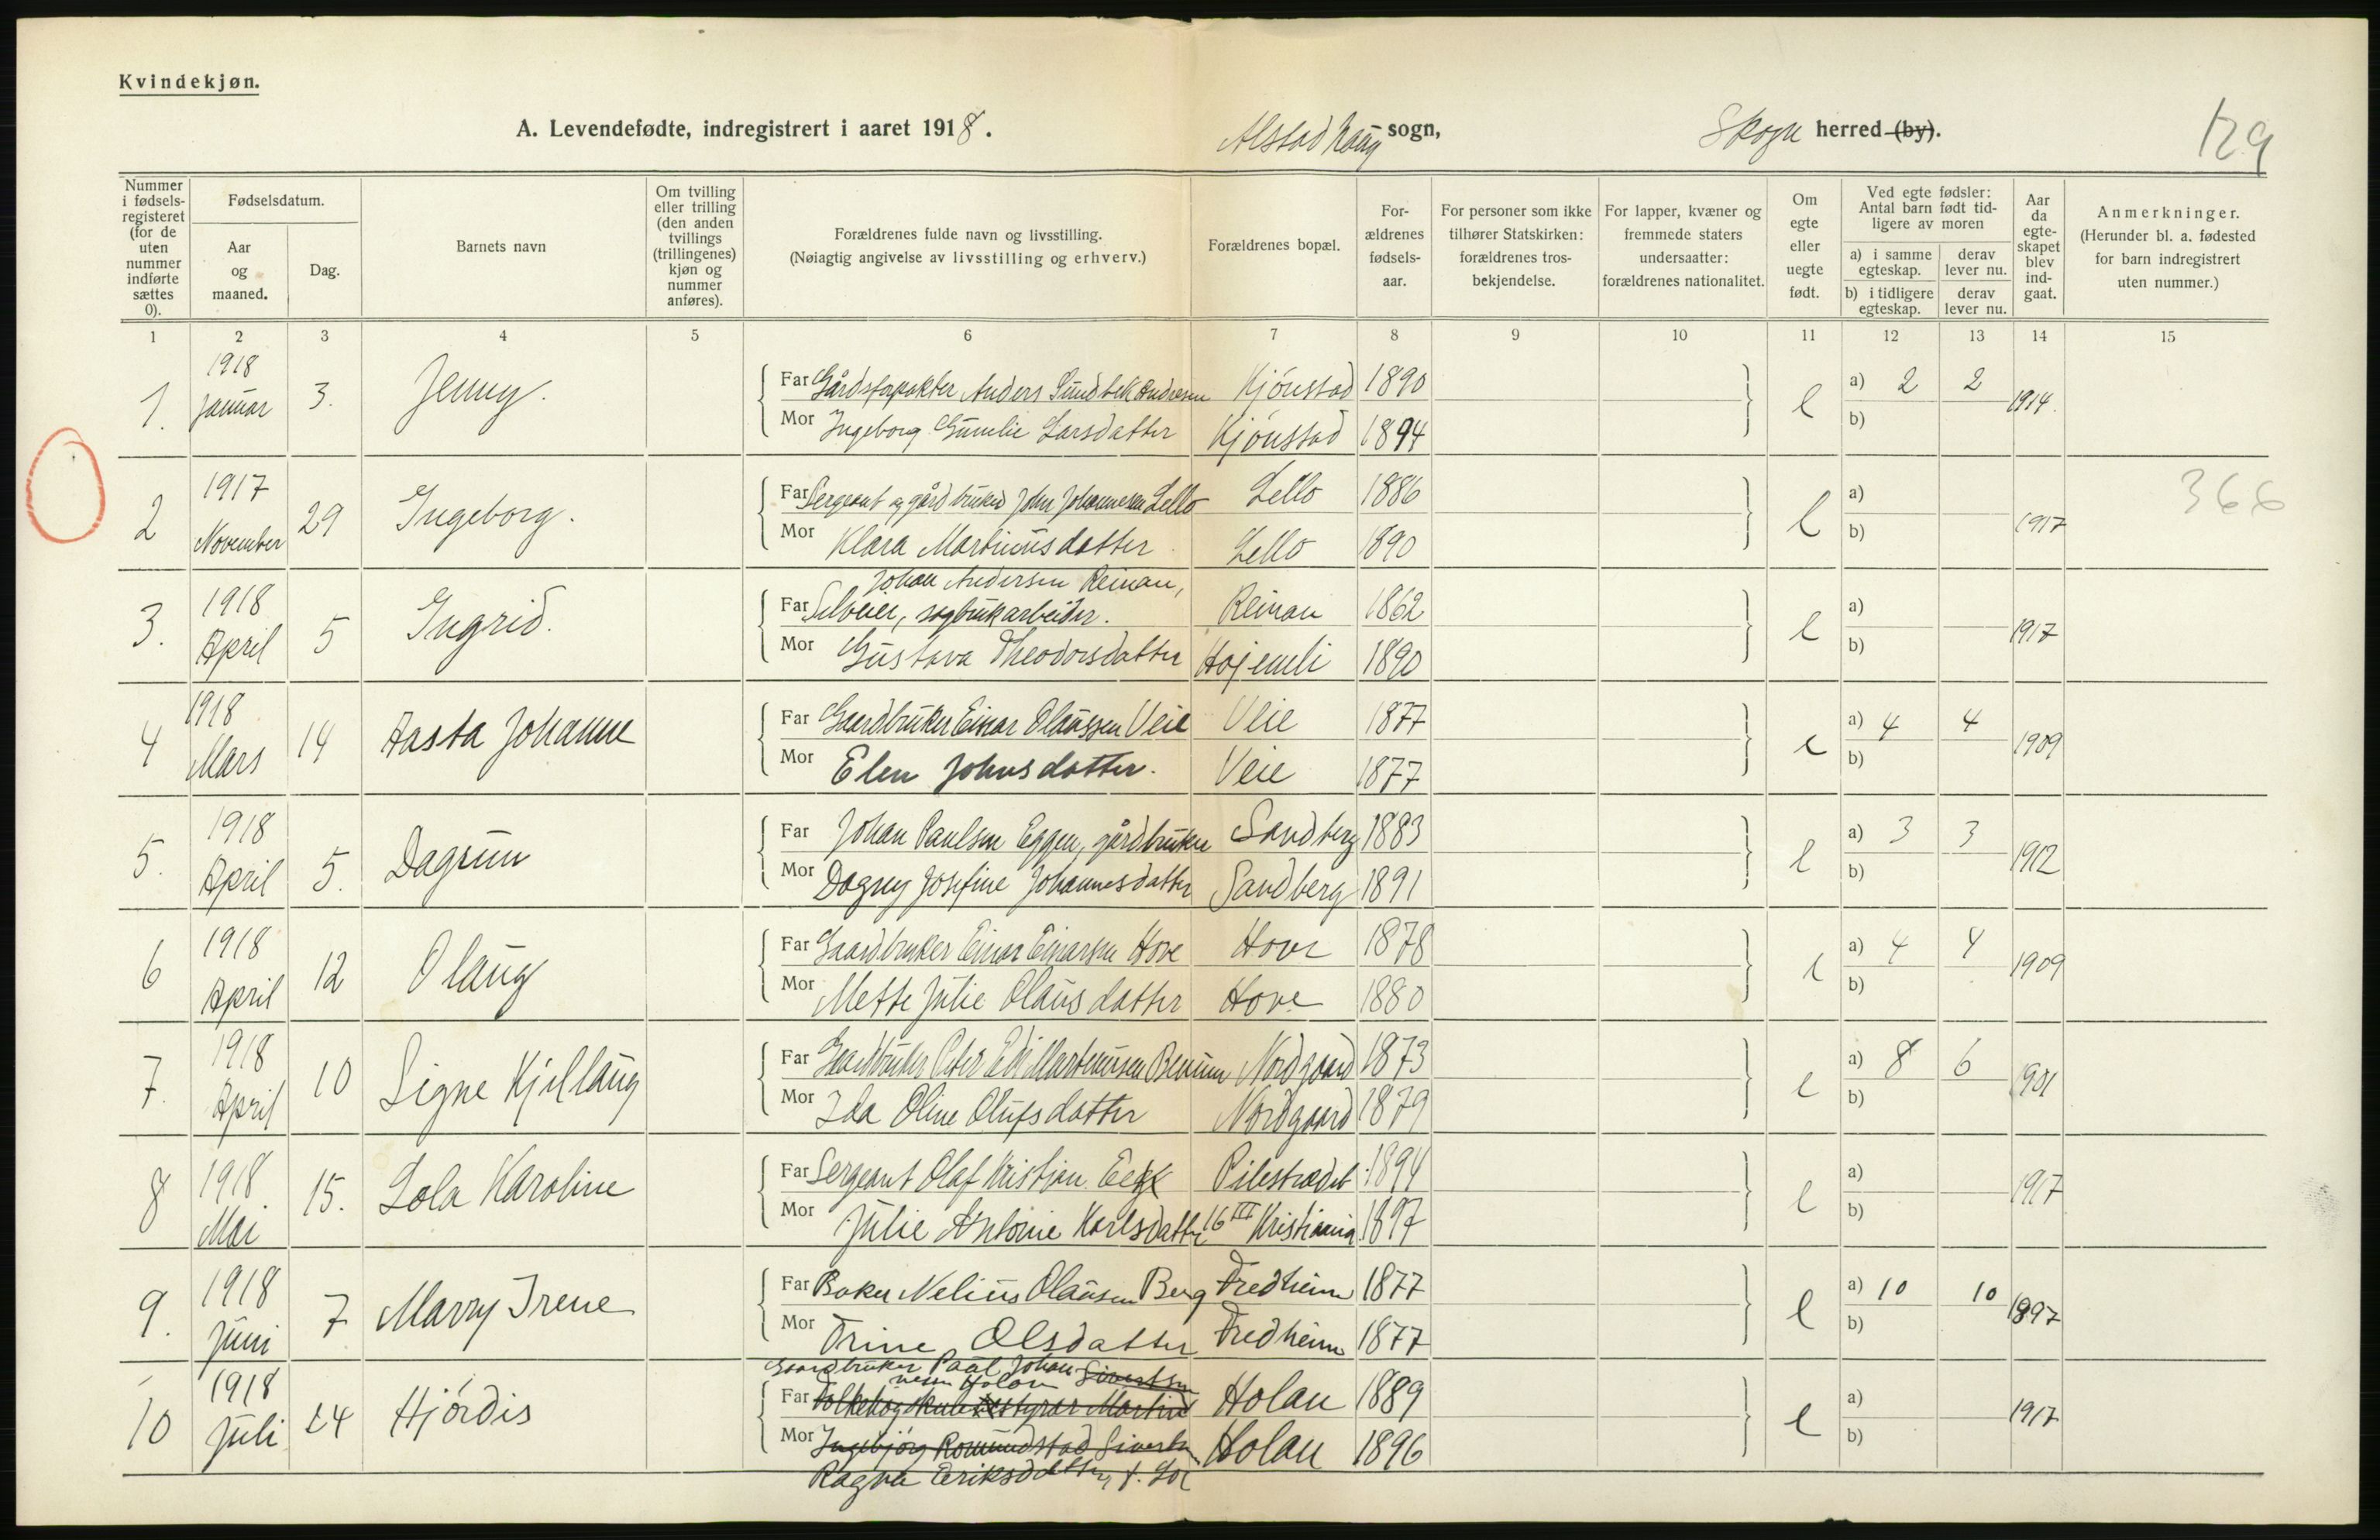 Kvindekjøn.
A. Levendefødte, indregistrert i aaret 1918. Alstadhaug sogn, Skogn herred (by). 129
Nummer i fødselsregisteret (for de uten nummer indførte sættes 0).
Fødselsdatum.
Aar og maaned.
Dag.
Barnets navn
Om tvilling eller trilling (den anden tvillings (trillingenes) kjøn og nummer anføres).
Forældrenes fulde navn og livsstilling.
(Nøiagtig angivelse av livsstilling og erhverv.)
Forældrenes bopæl.
Forældrenes fødselsaar.
For personer som ikke tilhører Statskirken: forældrenes trosbekjendelse.
For lapper, kvæner og fremmede staters undersaatter: forældrenes nationalitet.
Om egte eller uegte født.
Ved egte fødsler: Antal barn født tidligere av moren
a) i samme egteskap. derav lever nu.
b) i tidligere egteskap. derav lever nu.
Aar da egteskapet blev indgaat.
Anmerkninger.
(Herunder bl. a. fødested for barn indregistrert uten nummer.)
1 2 3 4 5 6 7 8 9 10 11 12 13 14 15
1. 1918 januar 3. Jenny.
Far Gårdsforpakter Anders Sundbek Andresen Kjønstad 1890 e a) 2 2 1914.
Mor Ingeborg Gunelie Larsdatter Kjønstad 1894 b)
2 1917 November 29 Ingeborg.
Far Sergeant og gårdbruker John Johannesen Lello Lello 1886 e a) 1917 366
Mor Klara Martinusdatter Lello 1890 b)
3. 1918 April 5 Ingrid.
Johan Andersen Reinan,
Far Selveier, sagbrukarbeider. Reinan 1862 e a) 1917
Mor Gustava Theodorsdatter Hojemli 1890 b)
4 1918 Mars 14 Aasta Johanne
Far Gaardbruker Einar Olaussen Veie Veie 1877 e a) 4 4 1909
Mor Elen Johnsdatter. Veie 1877 b)
5. 1918 April 5. Dagrun
Far Johan Paulsen Eggen, gårdbruker Sandberg 1883 e a) 3 3 1912
Mor Dagny Josefine Johannesdatter Sandberg 1891 b)
6 1918 April 12 Olaug
Far Gaardbruker Einar Einarsen Hove Hove 1878 e a) 4 4 1909
Mor Mette Julie Olausdatter Hove 1880 b)
7. 1918 April 10 Signe Kjellaug
Far Gaardbruker Peter Edv. Martinusen Benum Nordgaard 1873 e a) 8 6 1901
Mor Ida Oline Olufsdatter Nordgaard 1879 b)
8 1918 Mai 15. Lola Karoline
Far Sergeant Olaf Kristian Eek Pilestrædet 1894 e a) 1917
Mor Julie Antonie Karlsdatter 16 III Kristiania 1897 b)
9. 1918 Juni 7 Marry Irene
Far Baker Nelius Olausen Berg Fredheim 1877 e a) 10 10 1897
Mor Trine Olsdatter Fredheim 1877 b)
10 1918 Juli 24 Hjørdis
Gaardbruker Paal Johan Sivertsen
nesen Holan
Far Folkehøgskulestyrar Martin Holan 1889 e a) 1917
Mor Ingebjørg Romundstad Sivertsen Holan 1896 b)
Ragna Eriksdatter, f.